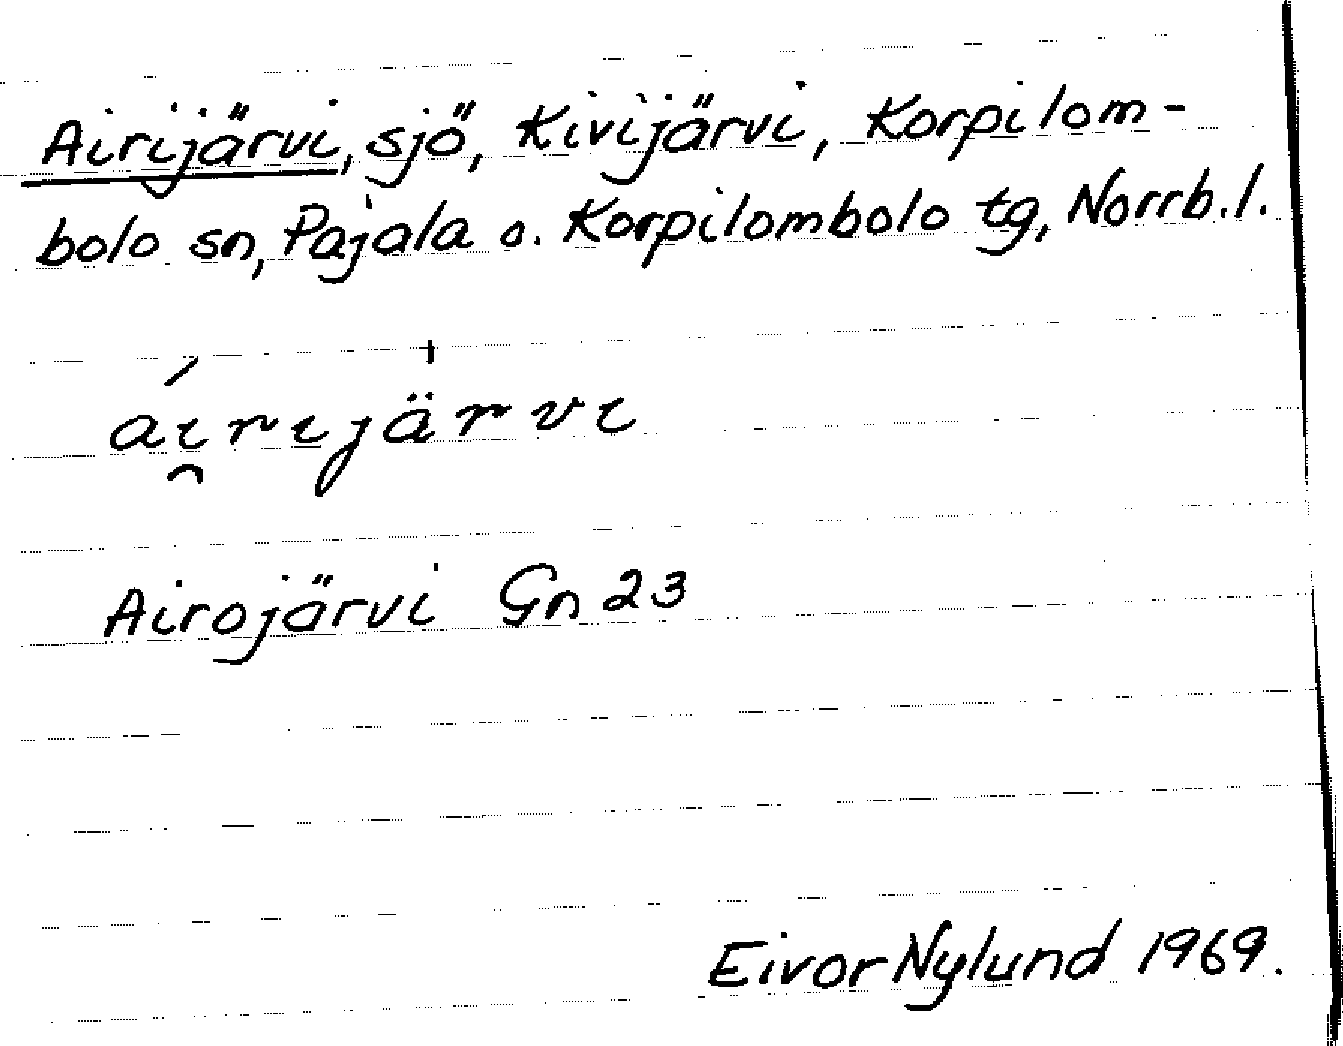 Airijärvi, sjö, Kivijärvi, Korpilom-
bolo sn, Pajala o. Korpilombolo tg, Norrb.l.
airijärvi
Airojärvi Gn 23
Eivor Nylund 1969.